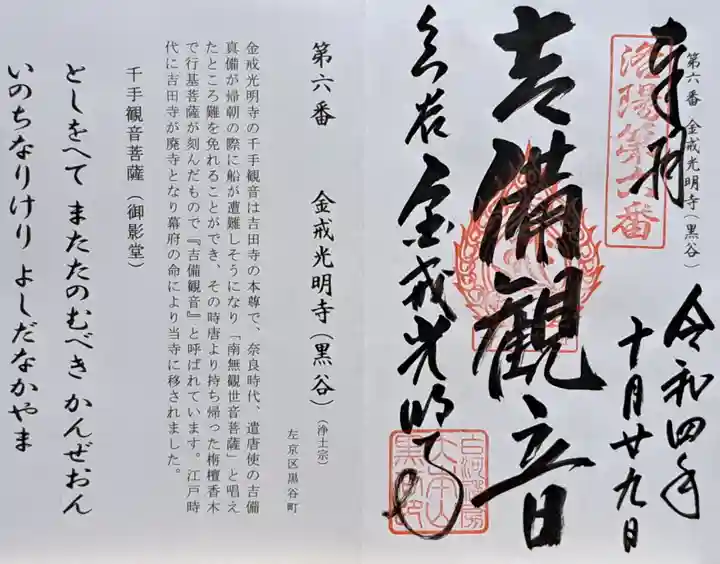 第六番 金戒光明寺（黒谷）
奉拝
洛陽第六番
令和四年
十月廿九日
吉備観音
黒谷 金戒光明寺
左京区黒谷町
第六番 金戒光明寺（黒谷）（浄土宗）
金戒光明寺の千手観音は吉田寺の本尊で、奈良時代、遣唐使の吉備
真備が帰朝の際に船が遭難しそうになり「南無観世音菩薩」と唱え
たところ難を免れることができ、その時唐より持ち帰った栴檀香木
で行基菩薩が刻んだもので『吉備観音』と呼ばれています。江戸時
代に吉田寺が廃寺となり幕府の命により当寺に移されました。
千手観音菩薩（御影堂）
としをへて またたのむべき かんぜおん
いのちなりけり よしだなかやま